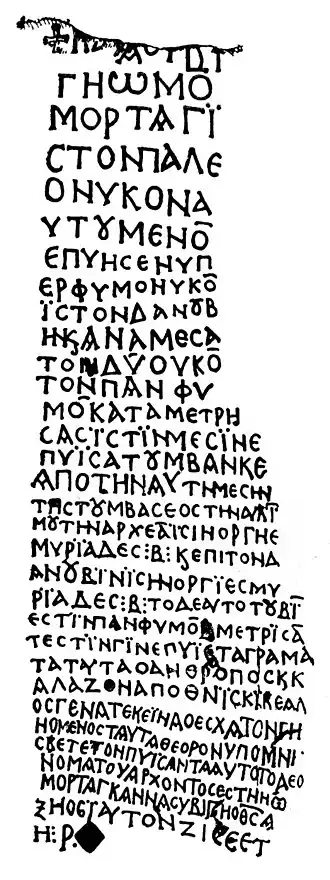 ΓΗΩΜΟ̄
ΜΟΡΤΑΓΪ
СΤΟΝΠΑΛΕ
ΟΝΥΚΟΝΑ
ΥΤȢΜΕΝΟ̄
ΕΠΥΗСΕΝΥΠ
ΕΡΦΥΜΟΝΥΚΟ̄
ΪСΤΟΝΔΑΝȢΒ
ΗΝϗΑΝΑΜΕСΑ
ΤΟΝΔΥΟΥΚΟ̄
ΤΟΝΠΑΝΦΥ
ΜΟ̄ΚΑΤΑΜΕΤΡΗ
САСΪСΤΪΝΜΕСΪΝΕ
ΠΥΪСΑΤȢΜΒΑΝΚΕ
ΑΠΟΤΗΝΑΥΤΗΜΕСΗΝ
ΤΗСΤȢΜΒΑСΕΟСΤΗΝΑΥΛΪ
ΜȢΤΗΝΑΡΧΕᾹΙСΙΝΟΡΓΗΕ
ΜΥΡΪΑΔΕС⁝Β⁝ϗΕΠΙΤΟΝΔΑ
ΑΝȢΒΪΝΙСΗΝΟΡΓΪΕСΜΥ
ΡΪΑΔΕС⁝Β⁝ΤΟΔΕΑΥΤΟΤȢΒΪ
ΕСΤΙΝΠΑΝΦΥΜΟ̄ϗΜΕΤΡΪСᾹ
ΤΕСΤΪΝΓΪΝΕΠΥΪСΑΤΑΓΡΑΜΑ
ΤΑΤΑΥΤΑΟΑΝΘΡΟΠΟСΚΚ
ΑΛΑΖΟΝΑΠΟΘΝΙСΚΙΚΕΑΛ
ΟСΓΕΝΑΤΕΚΕΪΝΑΟΕСΧΑΤΟΝΓΗ
ΝΟΜΕΝΟСΤΑΥΤΑΘΕΟΡΟΝΥΠΟΜΝΙ
СΚΕΤΕΤΟΝΠΥΪСΑΝΤΑΑΥΤΟΤΟΔΕΟ
ΝΟΜΑΤΟΥΑΡΧΟΝΤΟСΕСΤΗΝΩ
ΜΟΡΤΑΓΚΑΝΝΑСΥΒΙΓΗΟΘСΑ
ΞΗΟСΪΑΥΤΟΝΖΙСΕΕΤ
Η⁝Ρ.